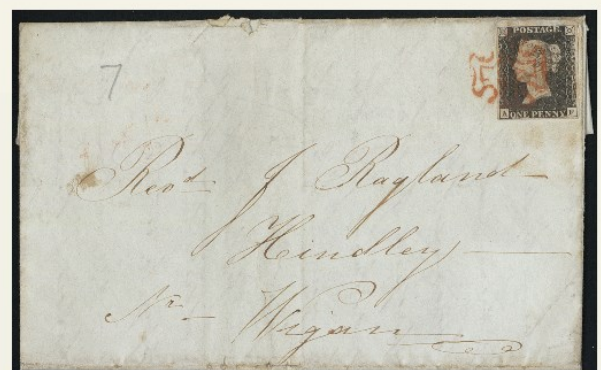 7
POSTAGE
ONE PENNY
Revd. J Ragland
Hindley
Nr Wigan